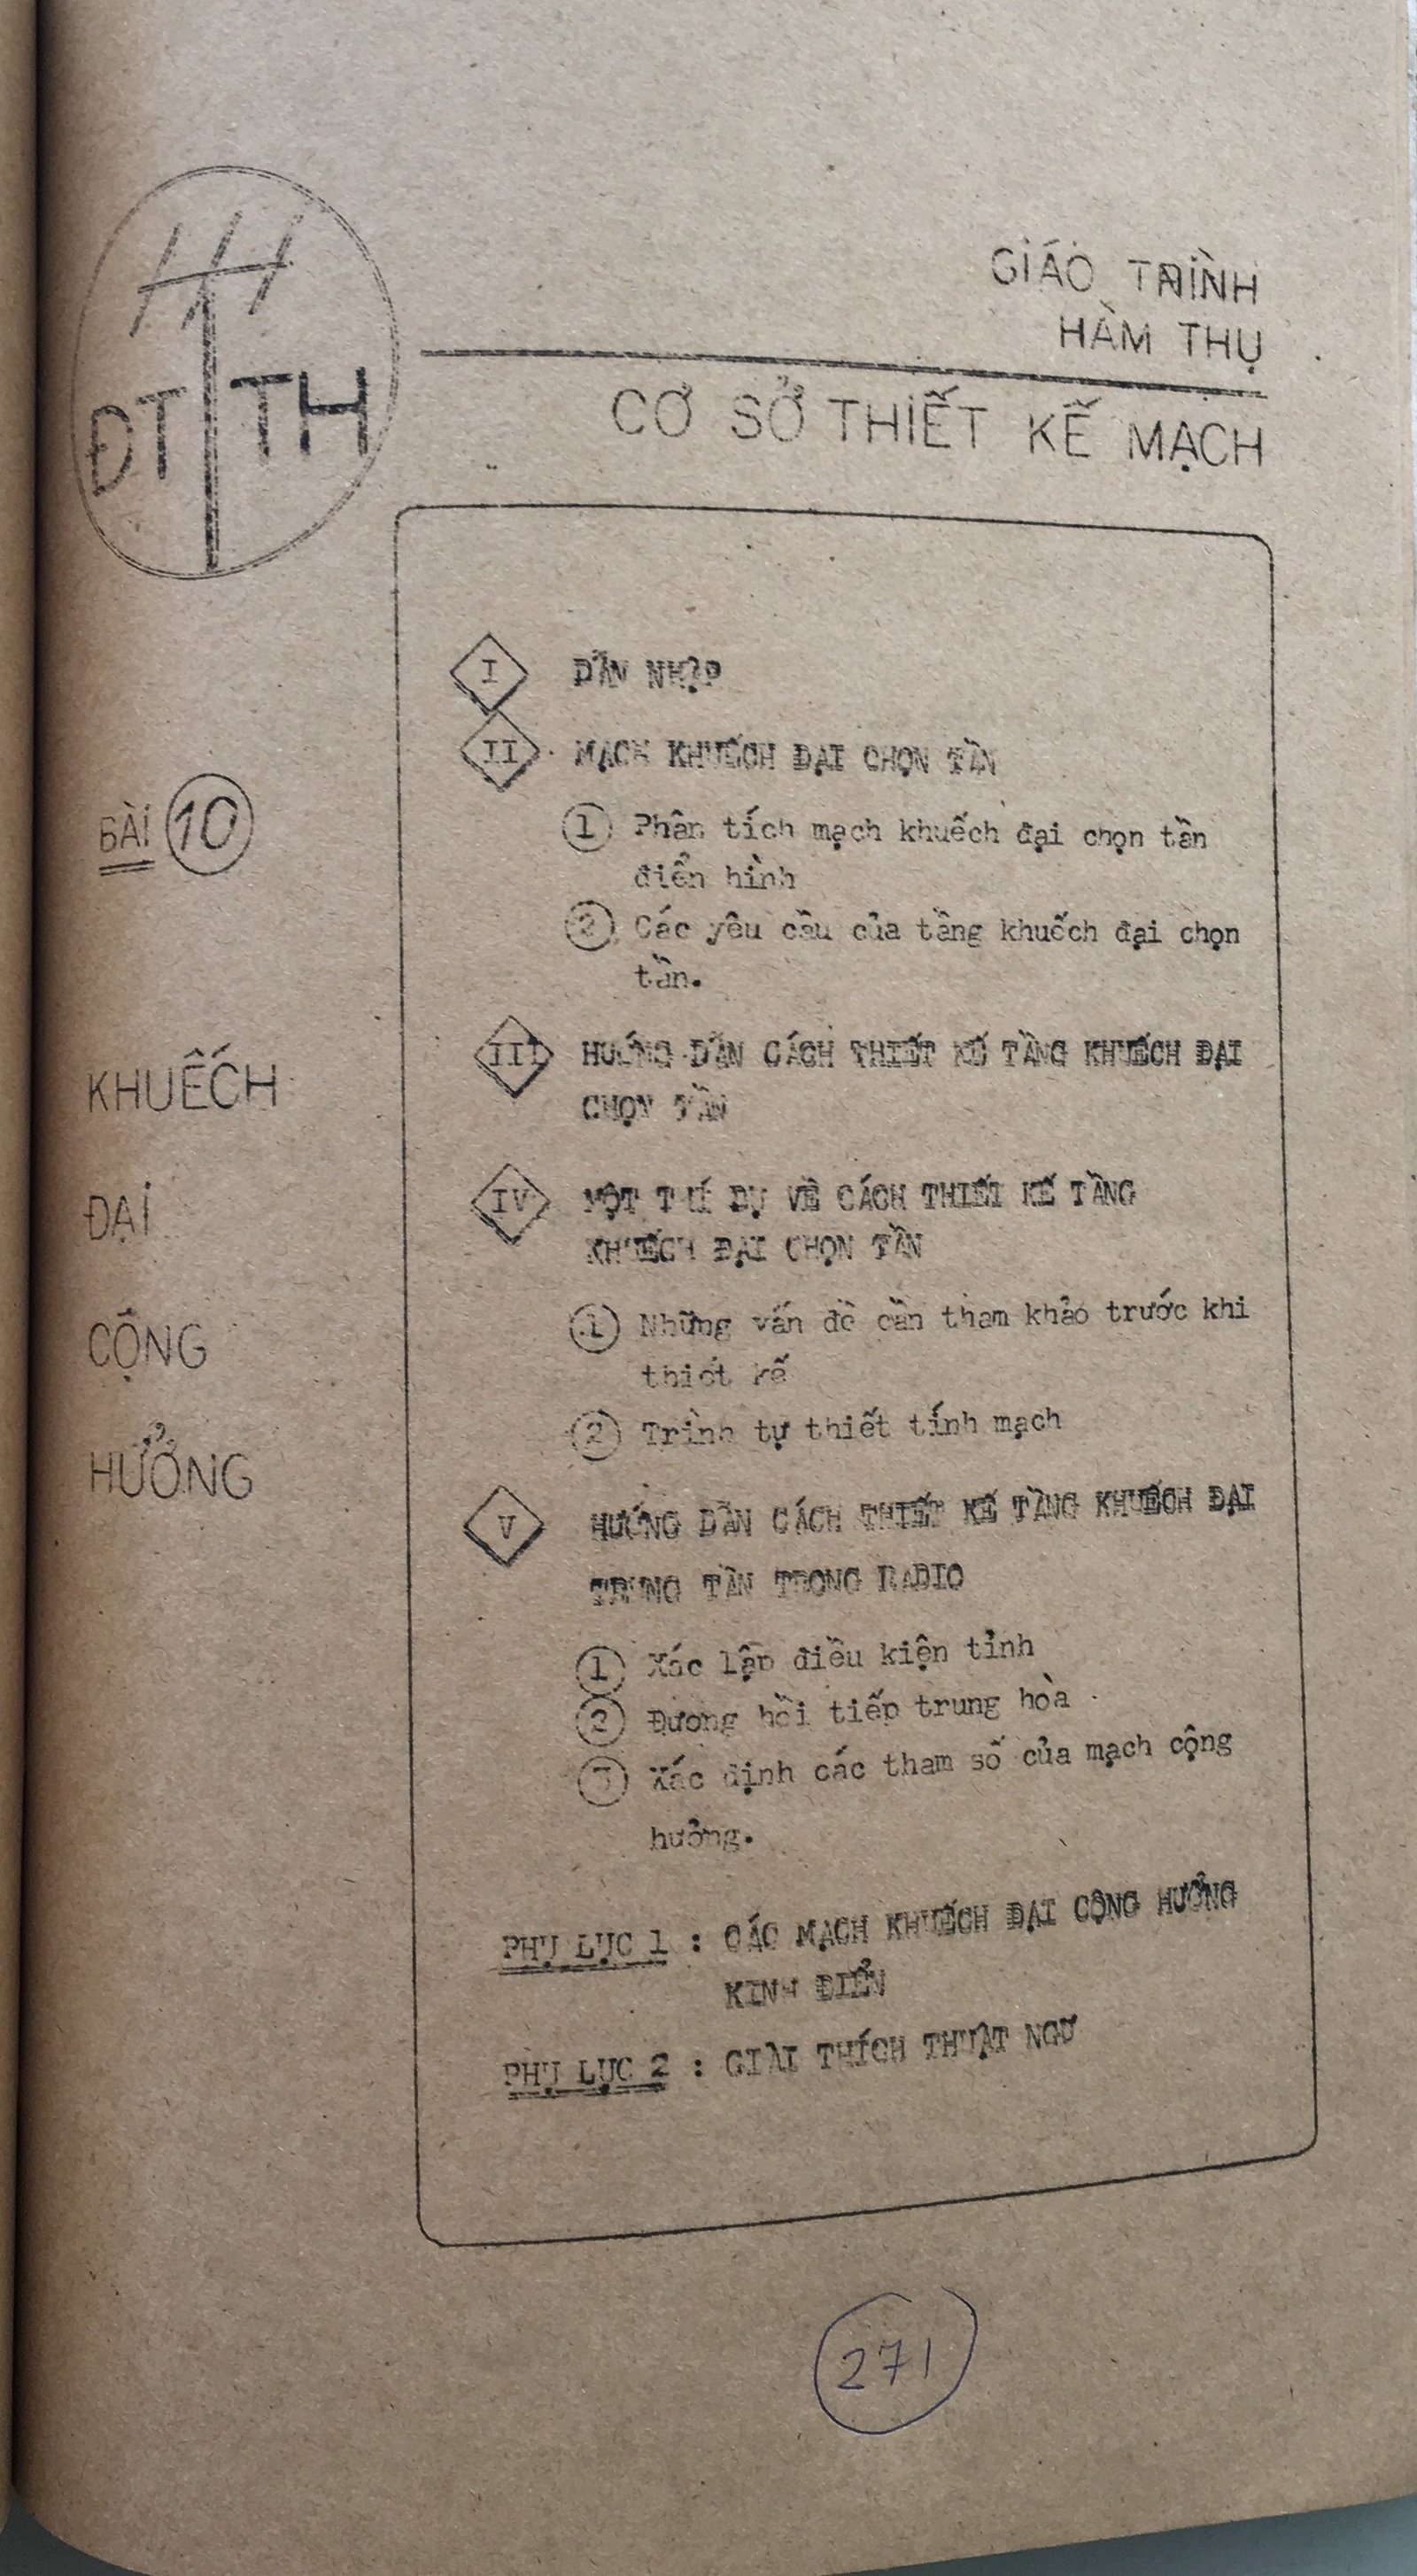 ĐT TH
GIÁO TRÌNH
HÀM THỤ
CƠ SỞ THIẾT KẾ MẠCH
BÀI 10
KHUẾCH
ĐẠI
CỘNG
HƯỞNG
I DẪN NHẬP
II MẠCH KHUẾCH ĐẠI CHỌN TẦN
1 Phân tích mạch khuếch đại chọn tần
điển hình
2 Các yêu cầu của tầng khuếch đại chọn
tần.
III HƯỚNG DẪN CÁCH THIẾT KẾ TẦNG KHUẾCH ĐẠI
CHỌN TẦN
IV MỘT THÍ DỤ VỀ CÁCH THIẾT KẾ TẦNG
KHUẾCH ĐẠI CHỌN TẦN
1 Những vấn đề cần tham khảo trước khi
thiết kế
2 Trình tự thiết tính mạch
V HƯỚNG DẪN CÁCH THIẾT KẾ TẦNG KHUẾCH ĐẠI
TRUNG TẦN TRONG RADIO
1 Xác lập điều kiện tỉnh
2 Đương hồi tiếp trung hòa
3 Xác định các tham số của mạch cộng
hưởng.
PHỤ LỤC 1 : CÁC MẠCH KHUẾCH ĐẠI CỘNG HƯỞNG
KINH ĐIỂN
PHỤ LỤC 2 : GIẢI THÍCH THUẬT NGỮ
271